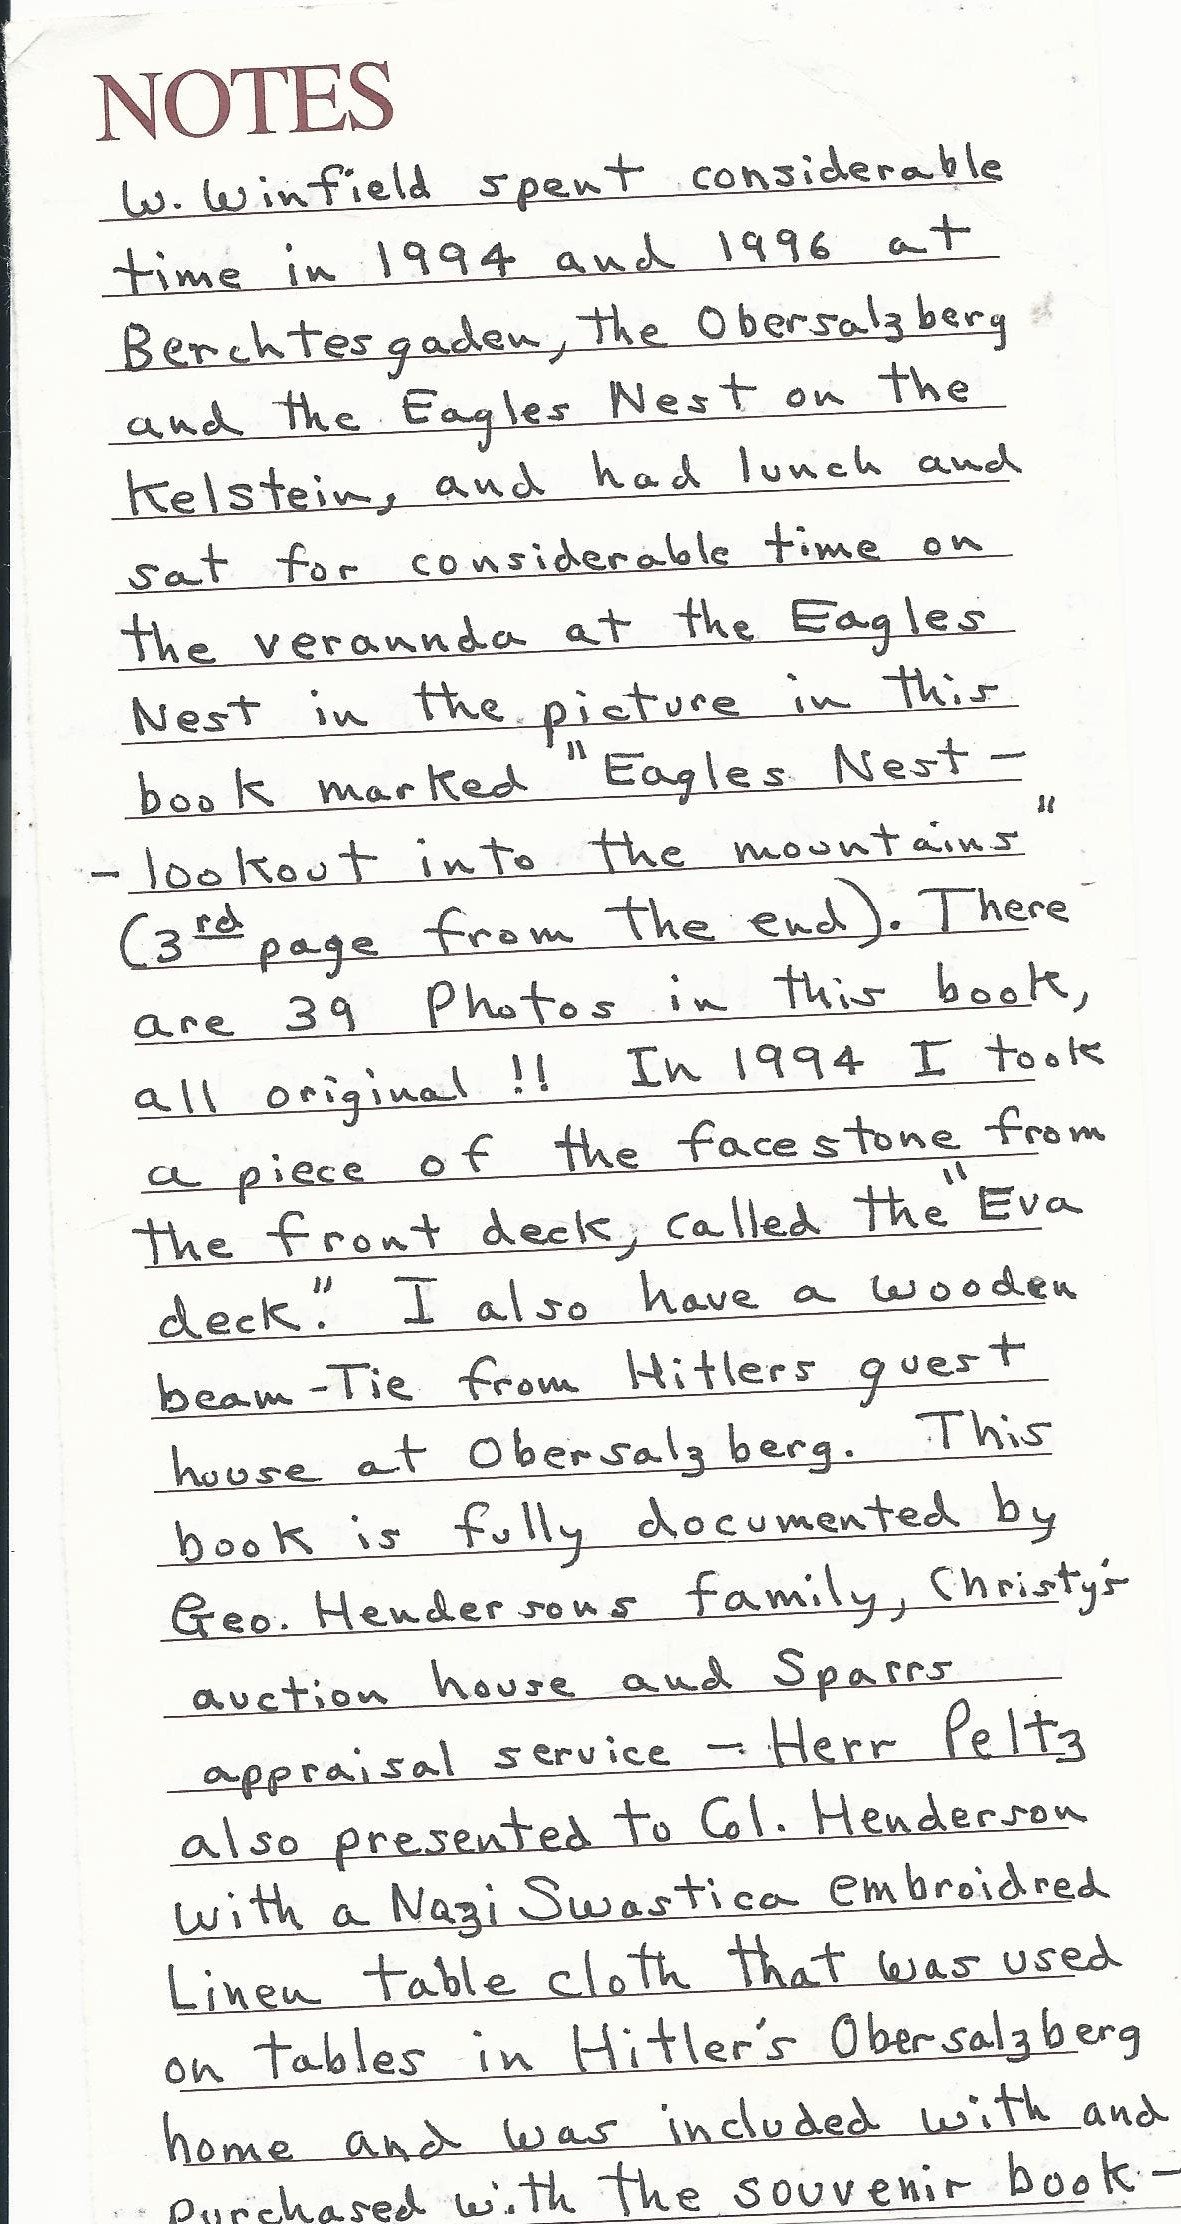 NOTES
W. Winfield spent considerable
time in 1994 and 1996 at
Berchtesgaden, the Obersalzberg
and the Eagles Nest on the
Kelstein, and had lunch and
sat for considerable time on
the verannda at the Eagles
Nest in the picture in this
book marked "Eagles Nest -
- lookout into the mountains"
(3rd page from the end). There
are 39 Photos in this book,
all original !! In 1994 I took
a piece of the facestone from
the front deck, called the "Eva
deck." I also have a wooden
beam-Tie from Hitlers guest
house at Obersalzberg. This
book is fully documented by
Geo. Hendersons family, Christy's
auction house and Sparrs
appraisal service - Herr Peltz
also presented to Col. Henderson
with a Nazi Swastica embroidred
Linen table cloth that was used
on tables in Hitler's Obersalzberg
home and was included with and
purchased with the souvenir book -